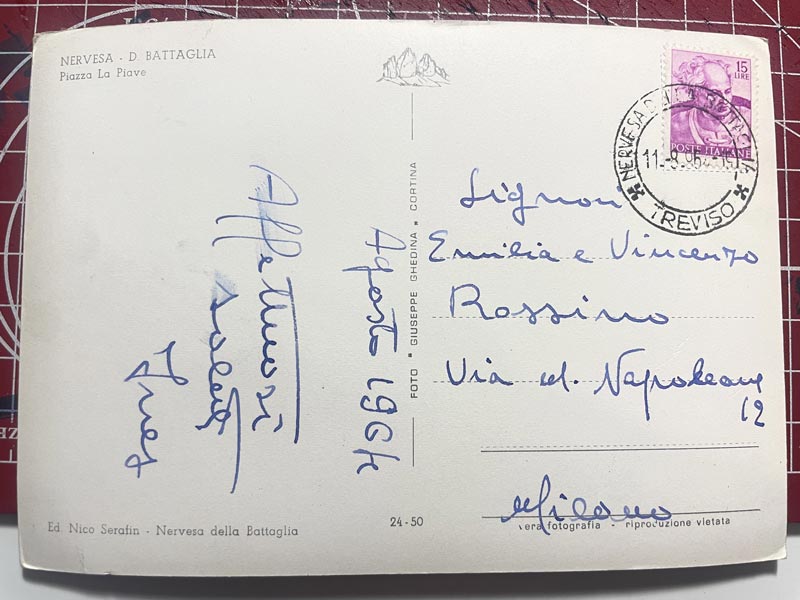 NERVESA - D. BATTAGLIA
Piazza La Piave
15
LIRE
POSTE ITALIANE
NERVESA DELLA BATTAGLIA
TREVISO
Agosto 1964
Affettuosi
saluti
Ines
FOTO • GIUSEPPE GHEDINA • CORTINA
Signori
Emilia e Vincenzo
Rossino
Via M. Napoleone
12
Milano
Ed. Nico Serafin - Nervesa della Battaglia
24-50
vera fotografia - riproduzione vietata